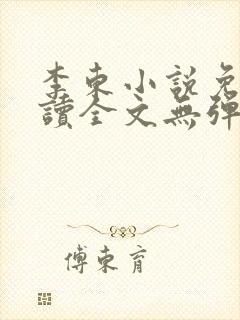 李東小說免
讀全文無彈
傅東育